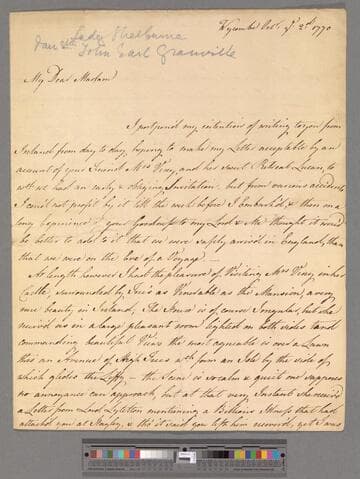 Wycombe Octr ye 2d 1770
Lady Shelburne
daur of John Earl Granville
My Dear Madam
I postpon'd my intention of writing to you from
Ireland from day to day, hoping to make my Letter acceptable by an
account of your Friend Mrs Vesey, and her sweet Retreat Lucan, to
wch we had an early & obliging Invitation. but from various accidents
I could not profit by it till the week before I Embarked & then on a
long Experience of your Goodness to my Lord & Me thought it would
be better to add to it that we were safely arrived in England, than
that we were on the Eve of a Voyage. —
At length however I had the pleasure of Visiting Mrs Vesey in her
Castle, surrounded by Trees as Venerable as the Mansion, a very
rare beauty in Ireland, The House is of course Irregular, but she
received us in a large pleasant room lighted on both sides &
commanding beautiful Views the most agreable is over a Lawn
thro an Avenue of high Trees with from an Isle by the side of
which glides the Liffy — the Scene is so calm & quiet one supposes
no annoyance can approach, but at that very Instant she received
a Letter from Lord Lyttelton mentioning a Bilious Illness that had
attacked you at Hagley, & tho' it said you left him recover'd, yet I was